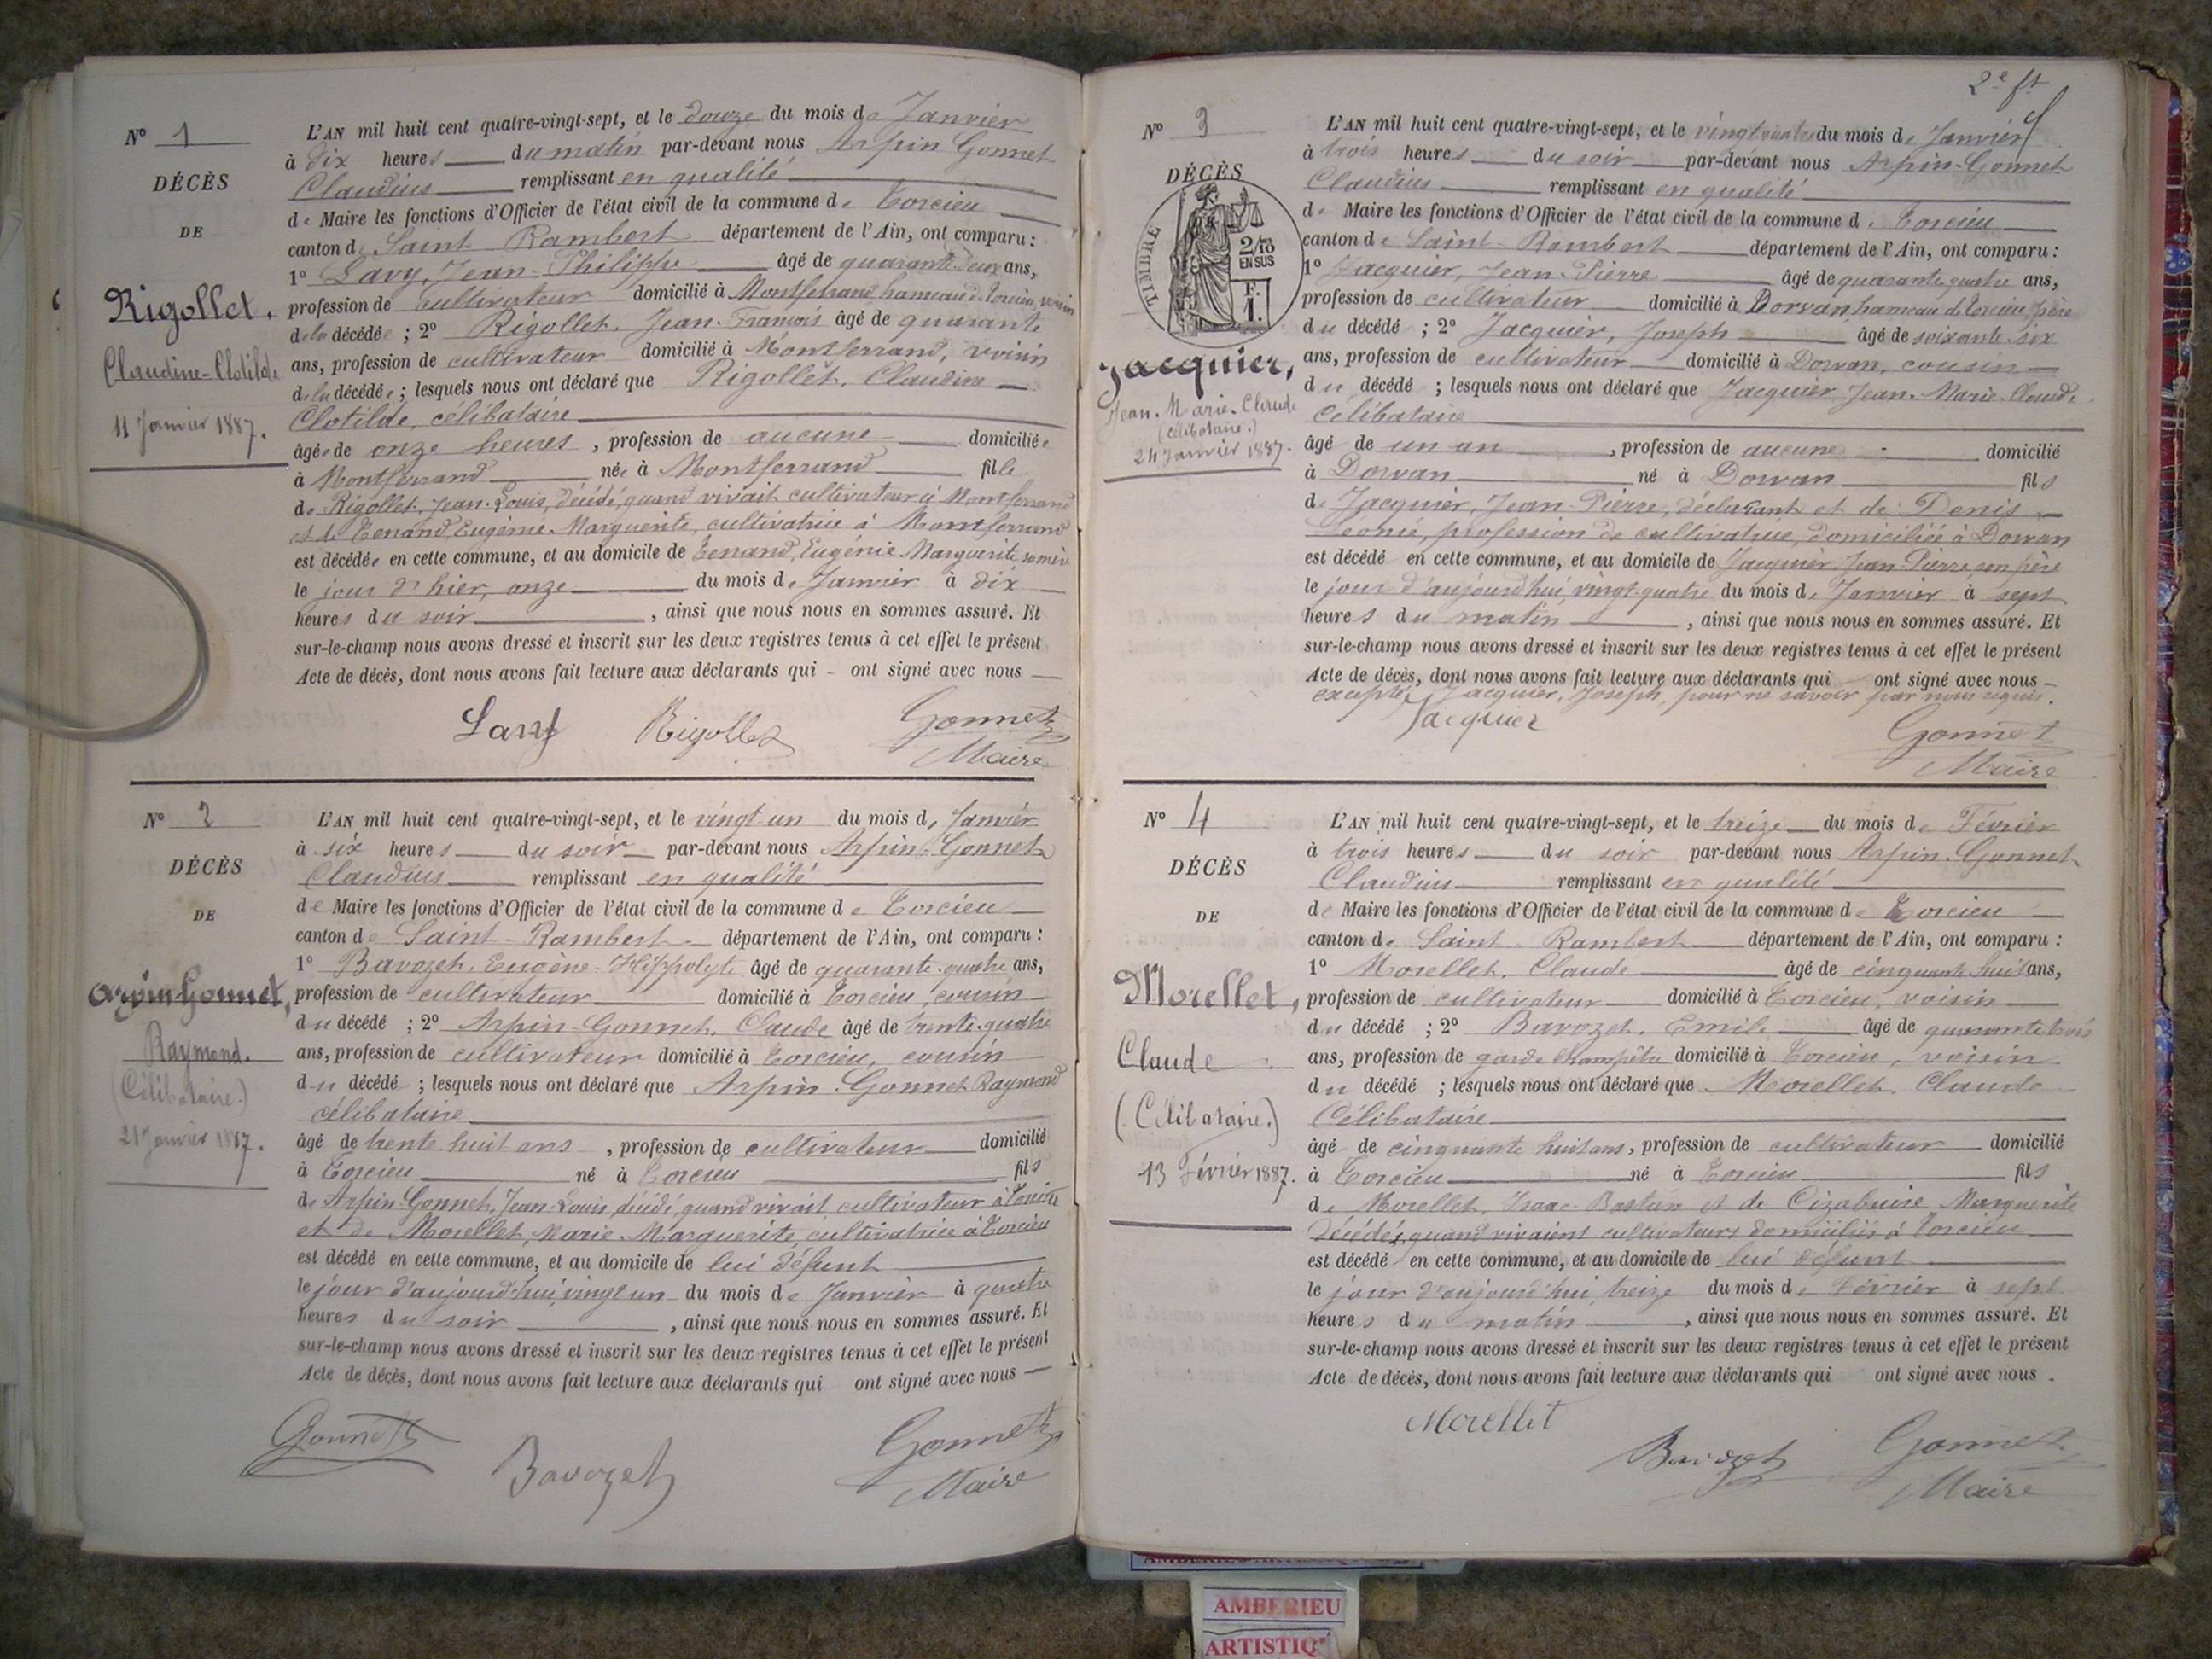 N° 1
DÉCÈS
DE
Rigollet.
Claudine-Clotilde
11 Janvier 1887.
L'AN mil huit cent quatre-vingt-sept, et le douze du mois de Janvier
à dix heures du matin par-devant nous Arpin-Gonnet
Claudius remplissant en qualité
de Maire les fonctions d'Officier de l'état civil de la commune de Torcieu
canton de Saint-Rambert département de l'Ain, ont comparu :
1° Lavy, Jean-Philippe âgé de quarante deux ans,
profession de cultivateur domicilié à Montferrand hameau de Torcieu, voisin
de la décédée ; 2° Rigollet, Jean-François âgé de quarante
ans, profession de cultivateur domicilié à Montferrand, voisin
de la décédée ; lesquels nous ont déclaré que Rigollet, Claudine
Clotilde, célibataire
âgée de onze heures, profession de aucune domiciliée
à Montferrand née à Montferrand fille
de Rigollet, Jean-Louis, décédé, quand vivait cultivateur à Montferrand
et de Tenand, Eugénie-Marguerite, cultivatrice à Montferrand
est décédée en cette commune, et au domicile de Tenand, Eugénie-Marguerite, sa mère
le jour d'hier, onze du mois de Janvier à dix
heures du soir, ainsi que nous nous en sommes assuré. Et
sur-le-champ nous avons dressé et inscrit sur les deux registres tenus à cet effet le présent
Acte de décès, dont nous avons fait lecture aux déclarants qui - ont signé avec nous
Lavy Rigollet Gonnet
Maire
N° 2
DÉCÈS
DE
Arpin Gonnet,
Raymond.
(Célibataire.)
21 Janvier 1887.
L'AN mil huit cent quatre-vingt-sept, et le vingt-un du mois de Janvier
à six heures du soir par-devant nous Arpin-Gonnet
Claudius remplissant en qualité
de Maire les fonctions d'Officier de l'état civil de la commune de Torcieu
canton de Saint-Rambert département de l'Ain, ont comparu :
1° Bavozet, Eugène-Hippolyte âgé de quarante-quatre ans,
profession de cultivateur domicilié à Torcieu, cousin
du décédé ; 2° Arpin-Gonnet, Claude âgé de trente-quatre
ans, profession de cultivateur domicilié à Torcieu, cousin
du décédé ; lesquels nous ont déclaré que Arpin-Gonnet Raymond
célibataire
âgé de trente huit ans, profession de cultivateur domicilié
à Torcieu né à Torcieu fils
de Arpin-Gonnet, Jean-Louis, décédé, quand vivait cultivateur à Torcieu
et de Morellet, Marie-Marguerite, cultivatrice à Torcieu
est décédé en cette commune, et au domicile de lui défunt
le jour d'aujourd'hui vingt un du mois de Janvier à quatre
heures du soir, ainsi que nous nous en sommes assuré. Et
sur-le-champ nous avons dressé et inscrit sur les deux registres tenus à cet effet le présent
Acte de décès, dont nous avons fait lecture aux déclarants qui ont signé avec nous
Gonnet Bavozet Gonnet
Maire
2e ft
N° 3
DÉCÈS
TIMBRE
2/10
EN SUS
F.
1.
Jacquier,
Jean-Marie-Claude
(célibataire.)
24 Janvier 1887.
L'AN mil huit cent quatre-vingt-sept, et le vingt quatre du mois de Janvier
à trois heures du soir par-devant nous Arpin-Gonnet
Claudius remplissant en qualité
de Maire les fonctions d'Officier de l'état civil de la commune de Torcieu
canton de Saint-Rambert département de l'Ain, ont comparu :
1° Jacquier, Jean-Pierre âgé de quarante quatre ans,
profession de cultivateur domicilié à Dorvan hameau de Torcieu, père
du décédé ; 2° Jacquier, Joseph âgé de soixante-six
ans, profession de cultivateur domicilié à Dorvan, cousin
du décédé ; lesquels nous ont déclaré que Jacquier, Jean-Marie-Claude
célibataire
âgé de un an, profession de aucune domicilié
à Dorvan né à Dorvan fils
de Jacquier, Jean-Pierre, déclarant et de Denis
Léonie, profession de cultivatrice, domiciliée à Dorvan
est décédé en cette commune, et au domicile de Jacquier Jean-Pierre, son père
le jour d'aujourd'hui, vingt-quatre du mois de Janvier à sept
heures du matin, ainsi que nous nous en sommes assuré. Et
sur-le-champ nous avons dressé et inscrit sur les deux registres tenus à cet effet le présent
Acte de décès, dont nous avons fait lecture aux déclarants qui ont signé avec nous
excepté, Jacquier, Joseph, pour ne savoir par nous requis.
Jacquier Gonnet
Maire
N° 4
DÉCÈS
DE
Morellet,
Claude
(Célibataire.)
13 Février 1887.
L'AN mil huit cent quatre-vingt-sept, et le treize du mois de Février
à trois heures du soir par-devant nous Arpin-Gonnet
Claudius remplissant en qualité
de Maire les fonctions d'Officier de l'état civil de la commune de Torcieu
canton de Saint-Rambert département de l'Ain, ont comparu :
1° Morellet, Claude âgé de cinquante huit ans,
profession de cultivateur domicilié à Torcieu, voisin
du décédé ; 2° Bavozet, Emile âgé de quarante trois
ans, profession de garde champêtre domicilié à Torcieu, voisin
du décédé ; lesquels nous ont déclaré que Morellet, Claude
Célibataire
âgé de cinquante huit ans, profession de cultivateur domicilié
à Torcieu né à Torcieu fils
de Morellet, Isaac-Bastien et de Cizabuire Marguerite
Décédés, quand vivaient cultivateurs domiciliés à Torcieu
est décédé en cette commune, et au domicile de lui défunt
le jour d'aujourd'hui, treize du mois de Février à sept
heures du matin, ainsi que nous nous en sommes assuré. Et
sur-le-champ nous avons dressé et inscrit sur les deux registres tenus à cet effet le présent
Acte de décès, dont nous avons fait lecture aux déclarants qui ont signé avec nous.
Morellet Bavozet Gonnet
Maire
AMBERIEU
ARTISTIQ